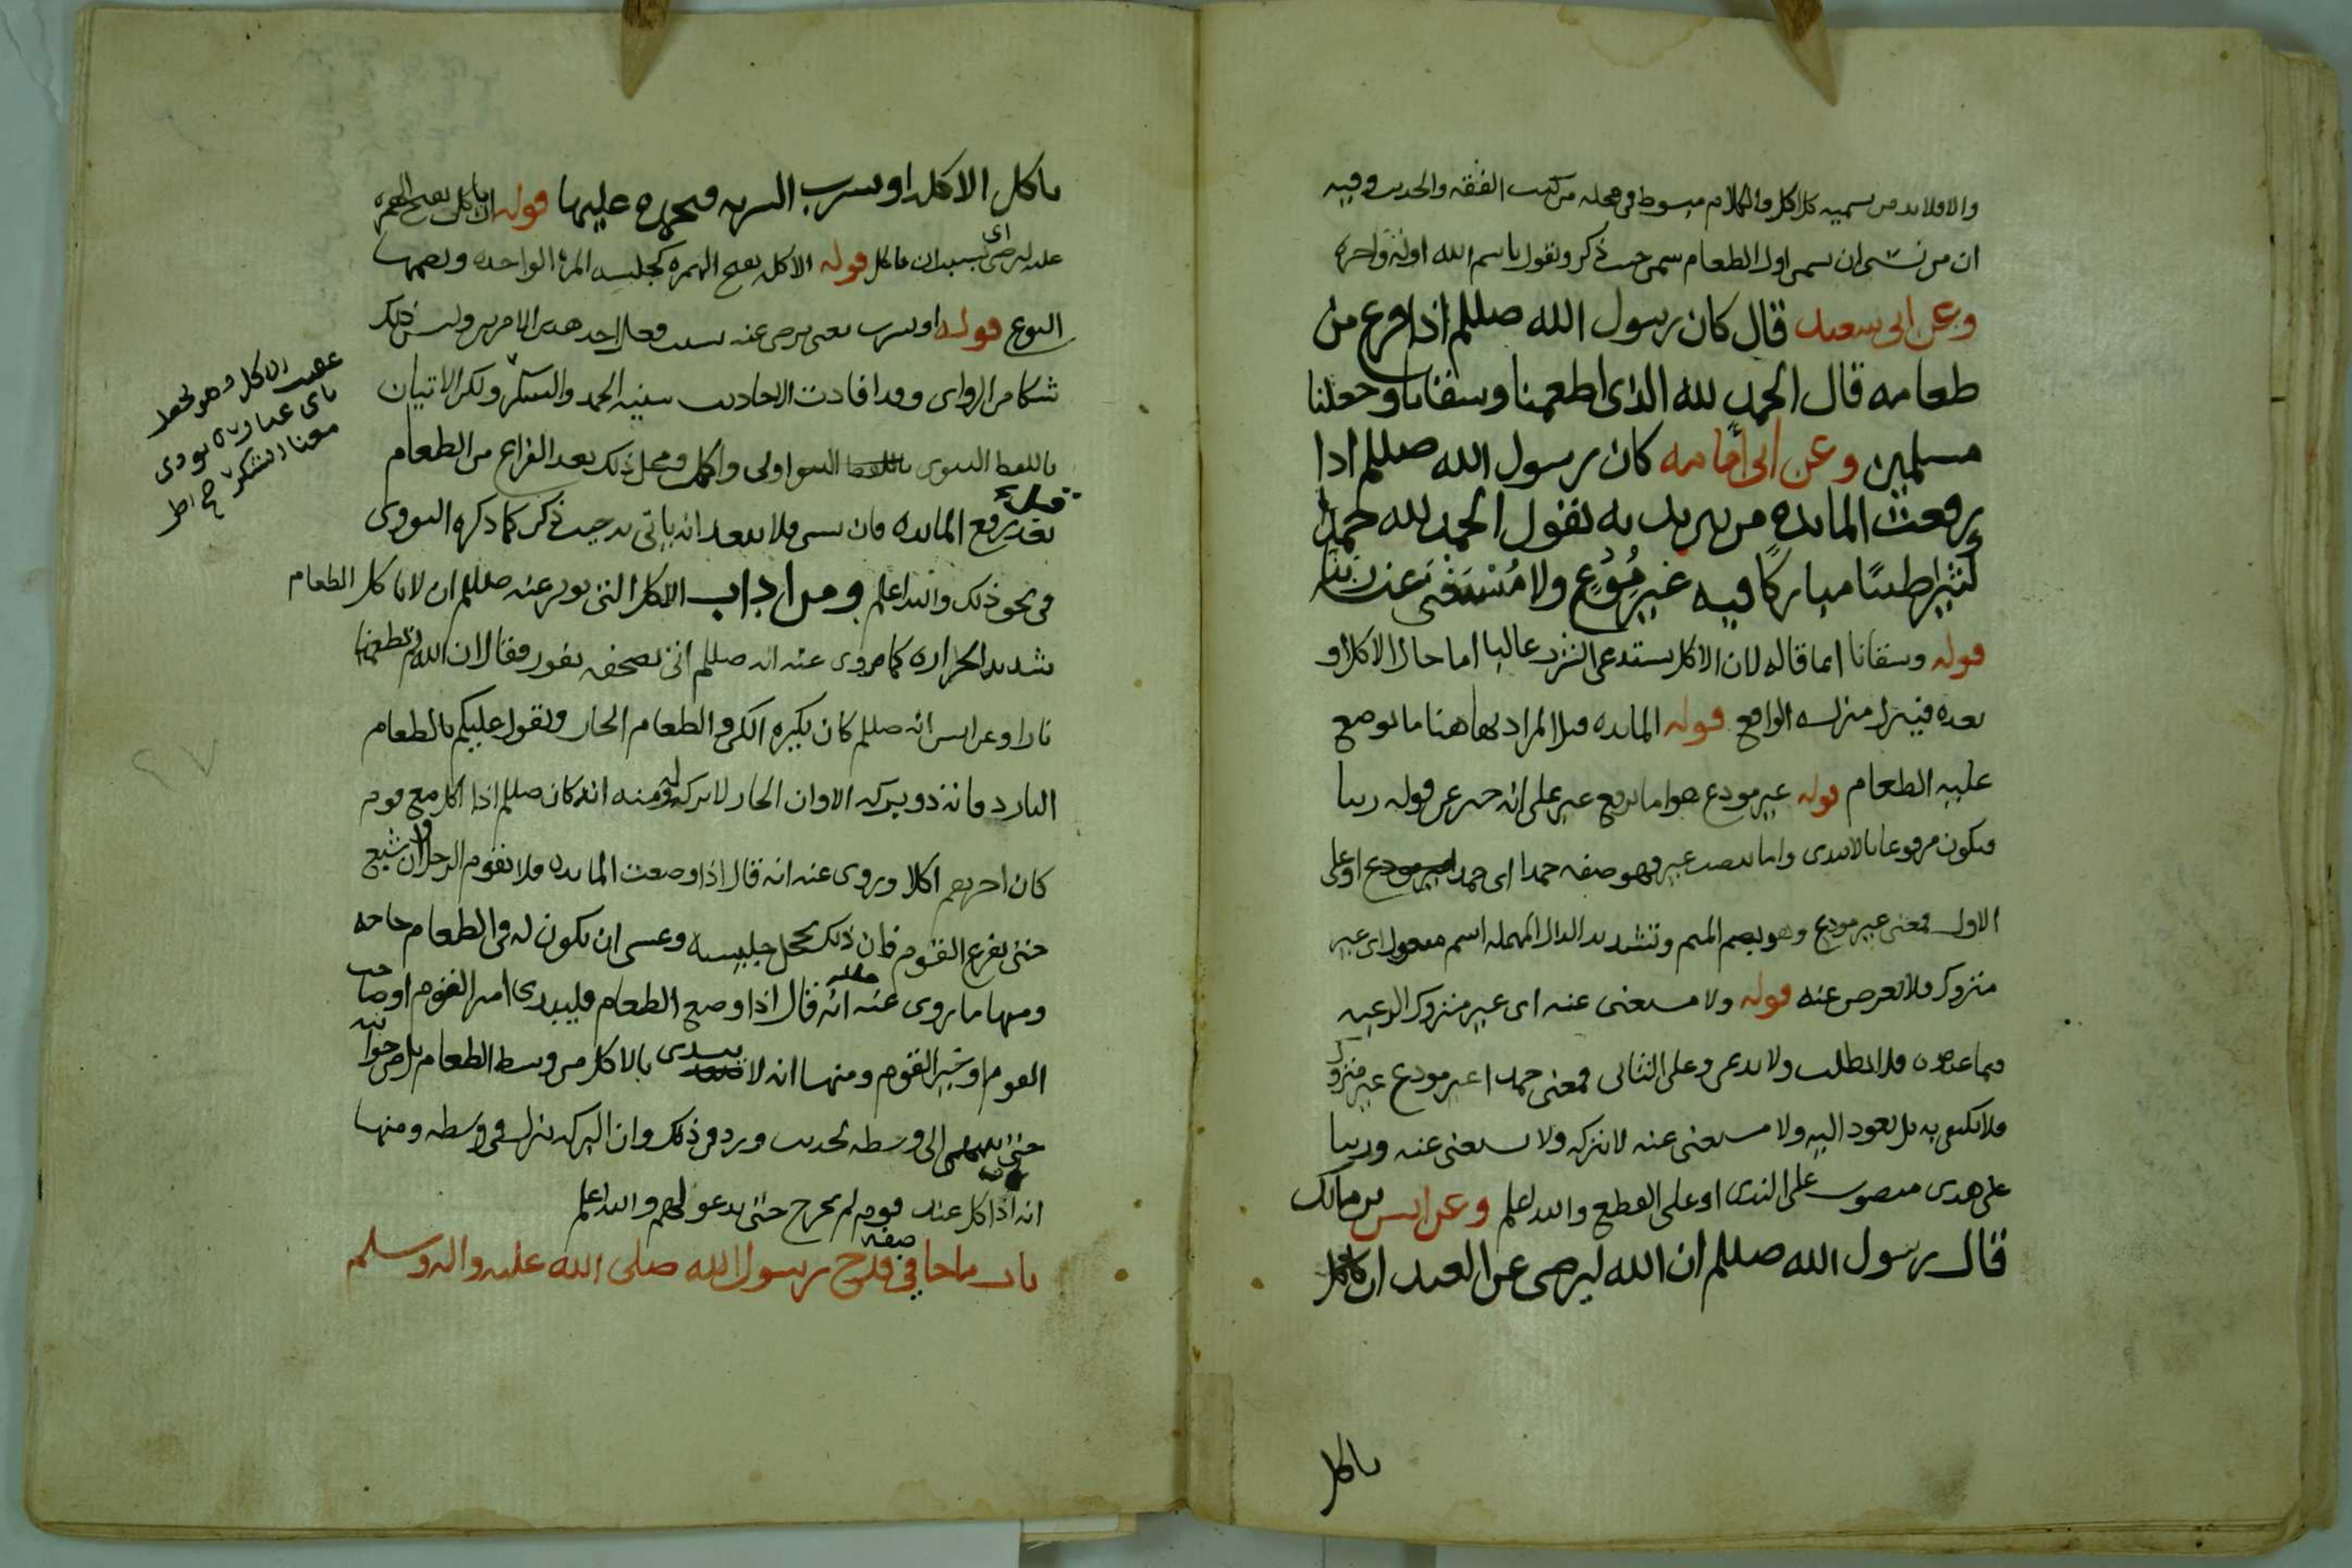 والا فلابد من تسميه كل اكل والكلام مبسوط في محله من كتب الفقه والحديث وفيه
ان من نسى ان يسمى اول الطعام سمى حيث ذكر ويقول باسم الله اوله واخره
وعن ابى سعيد قال كان رسول الله صللم اذا فرغ من
طعامه قال الحمد لله الذى اطعمنا وسقانا وجعلنا
مسلمين وعن ابى أمامه كان رسول الله صللم اذا
رفعت المايده من بين يديه يقول الحمد لله حمدا
كثيرا طيبًا مباركًا فيه غير مُوَدَّعٍ ولا مُسْتَغْنَى عنه ربنا
قوله وسقانا انما قاله لان الاكل يستدعى الشرب غالبا اما حال الاكل او
بعده فينزل منزله الواقع قوله المايده قيل المراد بها هنا ما يوضع
عليه الطعام قوله غير مودع هو اما برفع غير على انه خبر عن قوله ربنا
فيكون مرفوعا بالابتدى واما بنصب غير فهو صفه حمدا اى حمدا غير مودع او على
الاول فمعنى غير مودع وهو بضم الميم وتشديد الدال المهمله اسم مفعول اى غير
متروك فلا نعرض عنه قوله ولا مستغنى عنه اى غير متروك الرغبه
فيما عنده فلا يطلب ولا يدعى وعلى الثانى فمعنى حمدا غير مودع غير متروك
فلا نكتفى به بل نعود اليه ولا مستغنى عنه لا نتركه ولا نستغنى عنه وربنا
على هدى منصوب على الندى او على القطع والله اعلم وعن انس بن مالك
قال رسول الله صللم ان الله ليرضى عن العبد ان ياكل
ياكل
ياكل الاكله او يشرب الشربه فيحمده عليها قوله ان ياكل بفتح الهمزه
عله ليرضى اى بسبب ان ياكل قوله الاكله بفتح الهمزه كجلسه المره الواحده وبضمها
النوع قوله او يشرب يعنى يرضى عنه بسبب فعل احد هذين الامرين وليس ذلك
شكا من الراوى وقد افادت الاحاديث سنيه الحمد والشكر ولكن الاتيان
باللفظ النبوى اولى واكمل ومحل ذلك بعد الفراغ من الطعام
قبل رفع المايده فان نسى فلا يبعد انه ياتى به حيث ذكر كما ذكره النووى
فى نحو ذلك والله اعلم ومن اداب الاكل التى تؤثر عنه صللم ان لا ياكل الطعام
شديد الحراره كما روى عنه انه صللم اتى بصحفه تفور فقال ان الله لم يطعمنا
نارا وعن انس انه صللم كان يكره الكى والطعام الحار ويقول عليكم بالطعام
البارد فانه ذو بركه الا وان الحار لا بركه له ومنه انه كان صللم اذا اكل مع قوم
كان اخرهم اكلا وروى عنه انه قال اذا وضعت المايده فلا يقوم الرجل وان شبع
حتى يفرغ القوم فان ذلك يخجل جليسه وعسى ان يكون له فى الطعام حاجه
ومنها ما روى عنه صللم انه قال اذا وضع الطعام فليبدى امير القوم او صاحب
القوم او خير القوم ومنها انه لا يبتدى بالاكل من وسط الطعام بل من جوانبه
حتى ينتهى الى وسطه لحديث ورد فى ذلك وان البركه تنزل فى وسطه ومنها
انه اذا اكل عند قوم لم يخرج حتى يدعو لهم والله اعلم
باب ما جا فى صفه قدح رسول الله صلى الله عليه واله وسلم
عقيب الاكل وهو يحصل
باى عبارة تودى
معنا الشكر